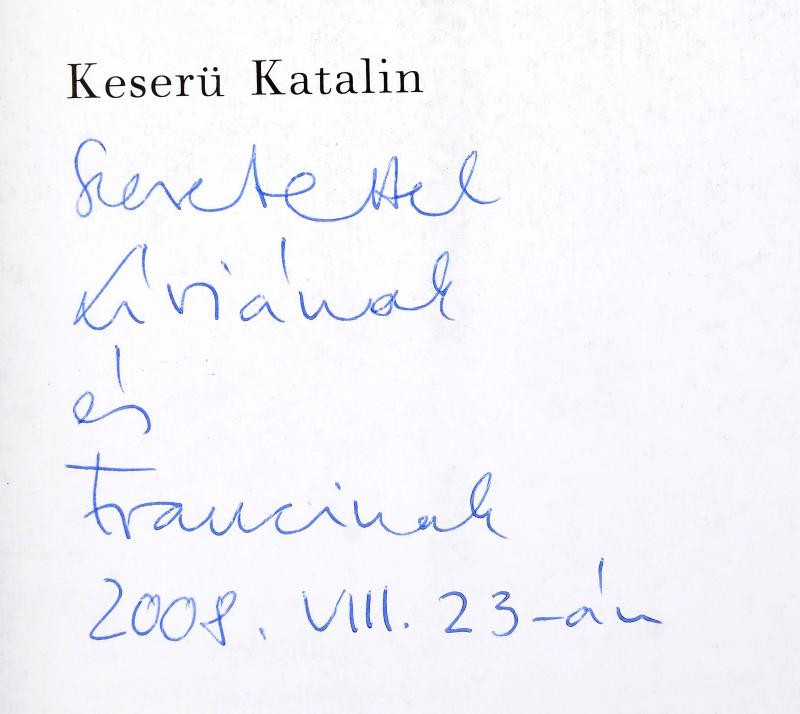 Keserü Katalin
Szeretettel
Líviának
és
Francinak
2008. VIII. 23-án